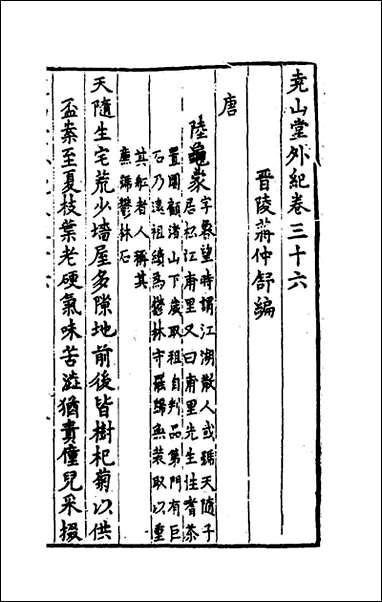 堯山堂外紀卷三十六
晋陵蔣仲舒編
唐
陸龜蒙
字魯望時謂江湖散人或號天隨子
居松江甫里又曰甫里先生性嗜茶
置園顧渚山下歲取租自判品第門有巨
石乃遠祖績為鬱林守罷歸無裝取以重
其舡者人稱其
廉號鬱林石
天隨生宅荒少墻屋多隙地前後皆樹杞菊以供
盃案至夏枝葉老硬氣味苦澁猶責僮兒采掇